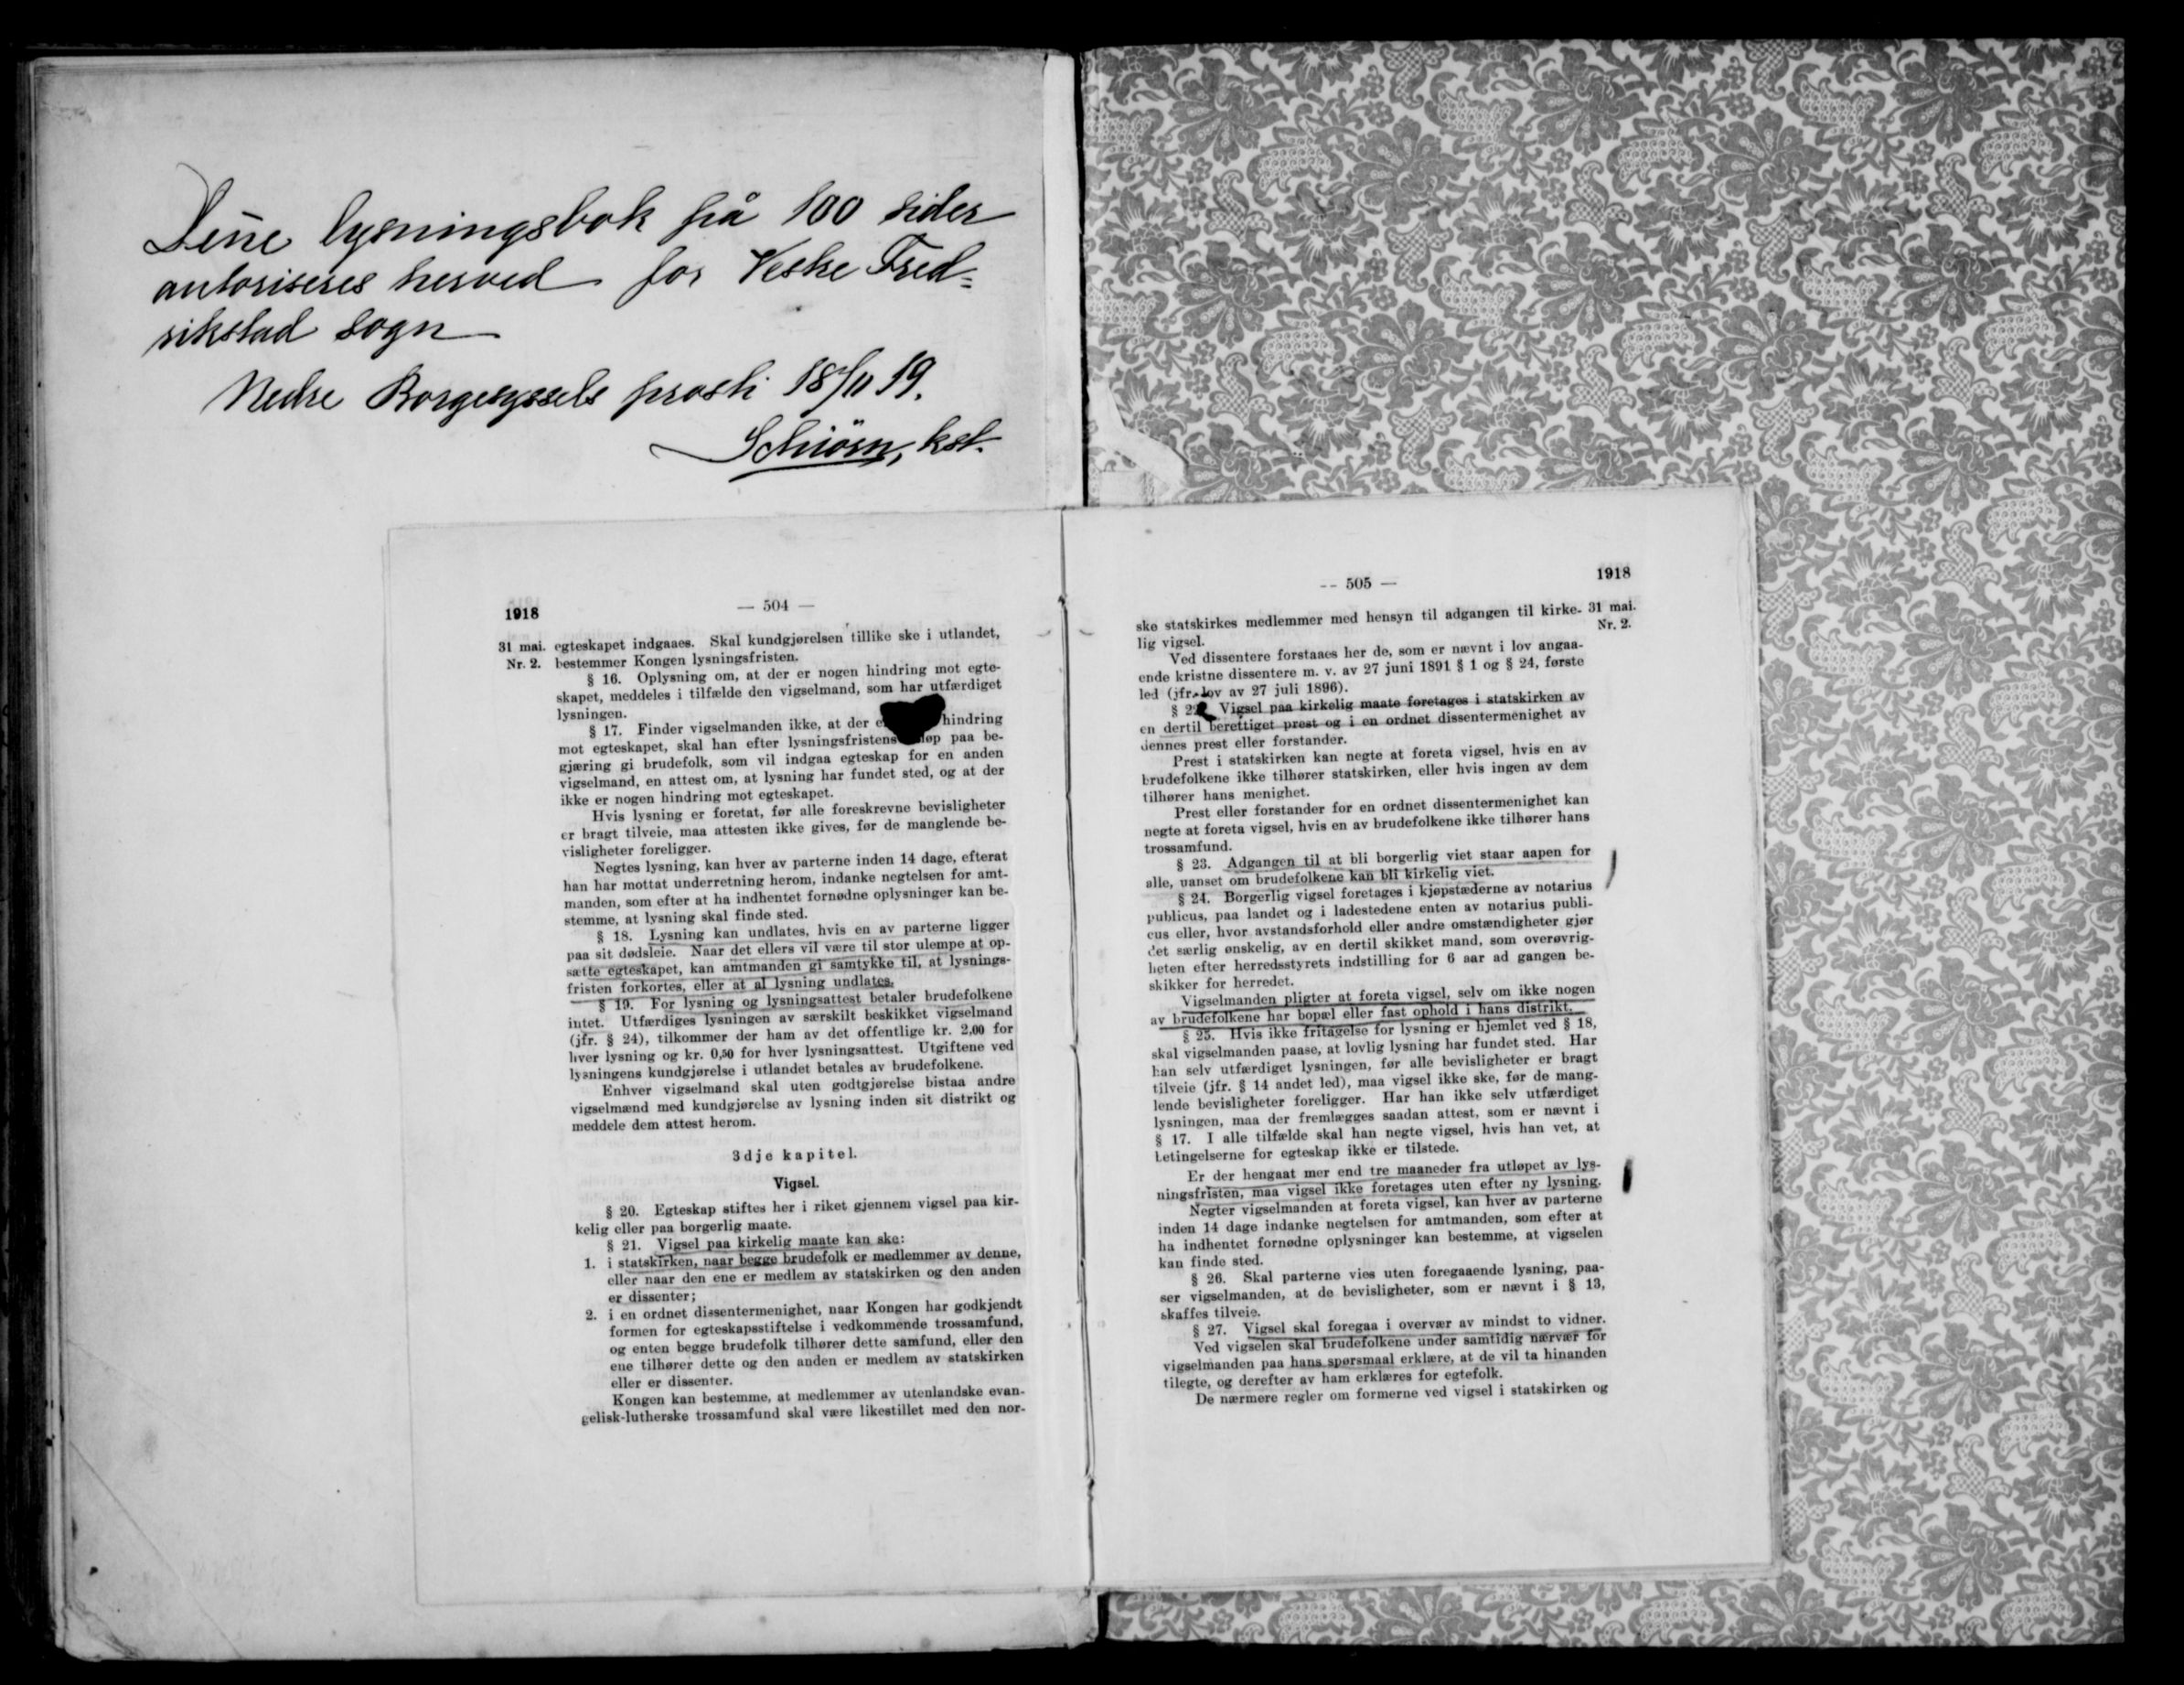 Denne lysningsbok på 100 sider
autoriseres herved for Vestre Fred=
rikstad sogn
Nedre Borgesyssels prosti 18/11 19.
kst.
1918
— 504 —
31 mai.
Nr. 2.
egteskapet indgaaes. Skal kundgjørelsen tillike ske i utlandet,
bestemmer Kongen lysningsfristen.
§ 16. Oplysning om, at der er nogen hindring mot egte-
skapet, meddeles i tilfælde den vigselmand, som har utfærdiget
lysningen.
§ 17. Finder vigselmanden ikke, at der hindring
mot egteskapet, skal han efter lysningsfristens paa be-
gjæring gi brudefolk, som vil indgaa egteskap for en anden
vigselmand, en attest om, at lysning har fundet sted, og at der
ikke er nogen hindring mot egteskapet.
Hvis lysning er foretat, før alle foreskrevne bevisligheter
er bragt tilveie, maa attesten ikke gives, før de manglende be-
visligheter foreligger.
Negtes lysning, kan hver av parterne inden 14 dage, efterat
han har mottat underretning herom, indanke negtelsen for amt-
manden, som efter at ha indhentet fornødne oplysninger kan be-
stemme, at lysning skal finde sted.
§ 18. Lysning kan undlates, hvis en av parterne ligger
paa sit dødsleie. Naar det ellers vil være til stor ulempe at op-
sætte egteskapet, kan amtmanden gi samtykke til, at lysnings-
fristen forkortes, eller at al lysning undlates.
§ 19. For lysning og lysningsattest betaler brudefolkene
intet. Utfærdiges lysningen av særskilt beskikket vigselmand
(jfr. § 24), tilkommer der ham av det offentlige kr. 2,00 for
hver lysning og kr. 0,50 for hver lysningsattest. Utgiftene ved
lysningens kundgjørelse i utlandet betales av brudefolkene.
Enhver vigselmand skal uten godtgjørelse bistaa andre
vigselmænd med kundgjørelse av lysning inden sit distrikt og
meddele dem attest herom.
3dje kapitel.
Vigsel.
§ 20. Egteskap stiftes her i riket gjennem vigsel paa kir-
kelig eller paa borgerlig maate.
§ 21. Vigsel paa kirkelig maate kan ske:
1. i statskirken, naar begge brudefolk er medlemmer av denne,
eller naar den ene er medlem av statskirken og den anden
er dissenter;
2. i en ordnet dissentermenighet, naar Kongen har godkjendt
formen for egteskapsstiftelse i vedkommende trossamfund,
og enten begge brudefolk tilhører dette samfund, eller den
ene tilhører dette og den anden er medlem av statskirken
eller er dissenter.
Kongen kan bestemme, at medlemmer av utenlandske evan-
gelisk-lutherske trossamfund skal være likestillet med den nor-
-- 505 —
1918
31 mai.
Nr. 2.
ske statskirkes medlemmer med hensyn til adgangen til kirke-
lig vigsel.
Ved dissentere forstaaes her de, som er nævnt i lov angaa-
ende kristne dissentere m. v. av 27 juni 1891 § 1 og § 24, første
led (jfr. lov av 27 juli 1896).
§ 22. Vigsel paa kirkelig maate foretages i statskirken av
en dertil berettiget prest og i en ordnet dissentermenighet av
dennes prest eller forstander.
Prest i statskirken kan negte at foreta vigsel, hvis en av
brudefolkene ikke tilhører statskirken, eller hvis ingen av dem
tilhører hans menighet.
Prest eller forstander for en ordnet dissentermenighet kan
negte at foreta vigsel, hvis en av brudefolkene ikke tilhører hans
trossamfund.
§ 23. Adgangen til at bli borgerlig viet staar aapen for
alle, uanset om brudefolkene kan bli kirkelig viet.
§ 24. Borgerlig vigsel foretages i kjøpstæderne av notarius
publicus, paa landet og i ladestedene enten av notarius publi-
cus eller, hvor avstandsforhold eller andre omstændigheter gjør
det særlig ønskelig, av en dertil skikket mand, som overøvrig-
heten efter herredsstyrets indstilling for 6 aar ad gangen be-
skikker for herredet.
Vigselmanden pligter at foreta vigsel, selv om ikke nogen
av brudefolkene har bopæl eller fast ophold i hans distrikt.
§ 25. Hvis ikke fritagelse for lysning er hjemlet ved § 18,
skal vigselmanden paase, at lovlig lysning har fundet sted. Har
han selv utfærdiget lysningen, før alle bevisligheter er bragt
tilveie (jfr. § 14 andet led), maa vigsel ikke ske, før de mang-
lende bevisligheter foreligger. Har han ikke selv utfærdiget
lysningen, maa der fremlægges saadan attest, som er nævnt i
§ 17. I alle tilfælde skal han negte vigsel, hvis han vet, at
betingelserne for egteskap ikke er tilstede.
Er der hengaat mer end tre maaneder fra utløpet av lys-
ningsfristen, maa vigsel ikke foretages uten efter ny lysning.
Negter vigselmanden at foreta vigsel, kan hver av parterne
inden 14 dage indanke negtelsen for amtmanden, som efter at
ha indhentet fornødne oplysninger kan bestemme, at vigselen
kan finde sted.
§ 26. Skal parterne vies uten foregaaende lysning, paa-
ser vigselmanden, at de bevisligheter, som er nævnt i § 13,
skaffes tilveie.
§ 27. Vigsel skal foregaa i overvær av mindst to vidner.
Ved vigselen skal brudefolkene under samtidig nærvær for
vigselmanden paa hans spørsmaal erklære, at de vil ta hinanden
tilegte, og derefter av ham erklæres for egtefolk.
De nærmere regler om formerne ved vigsel i statskirken og